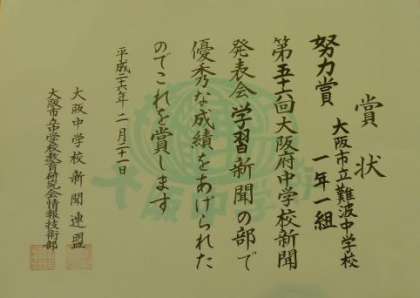 賞状
努力賞
大阪市立難波中学校
一年一組
第五十六回大阪府中学校新聞
発表会学習新聞の部で
優秀な成績をあげられた
のでこれを賞します
平成二十六年二月二十一日
大阪中学校新聞連盟
大阪市立中学校教育研究会情報技術部